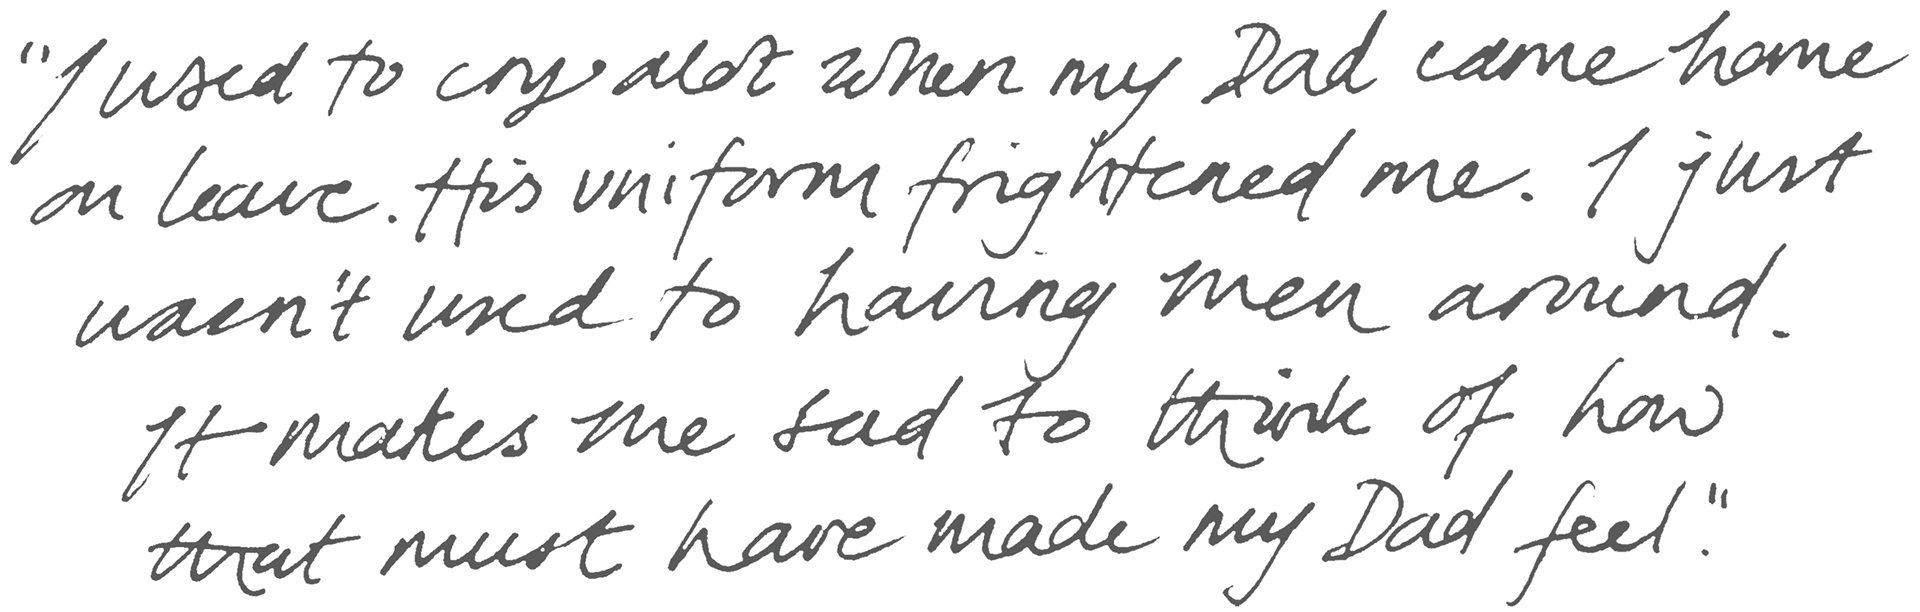 "I used to cry alot when my Dad came home
on leave. His uniform frightened me. I just
wasn't used to having men around.
It makes me sad to think of how
that must have made my Dad feel."